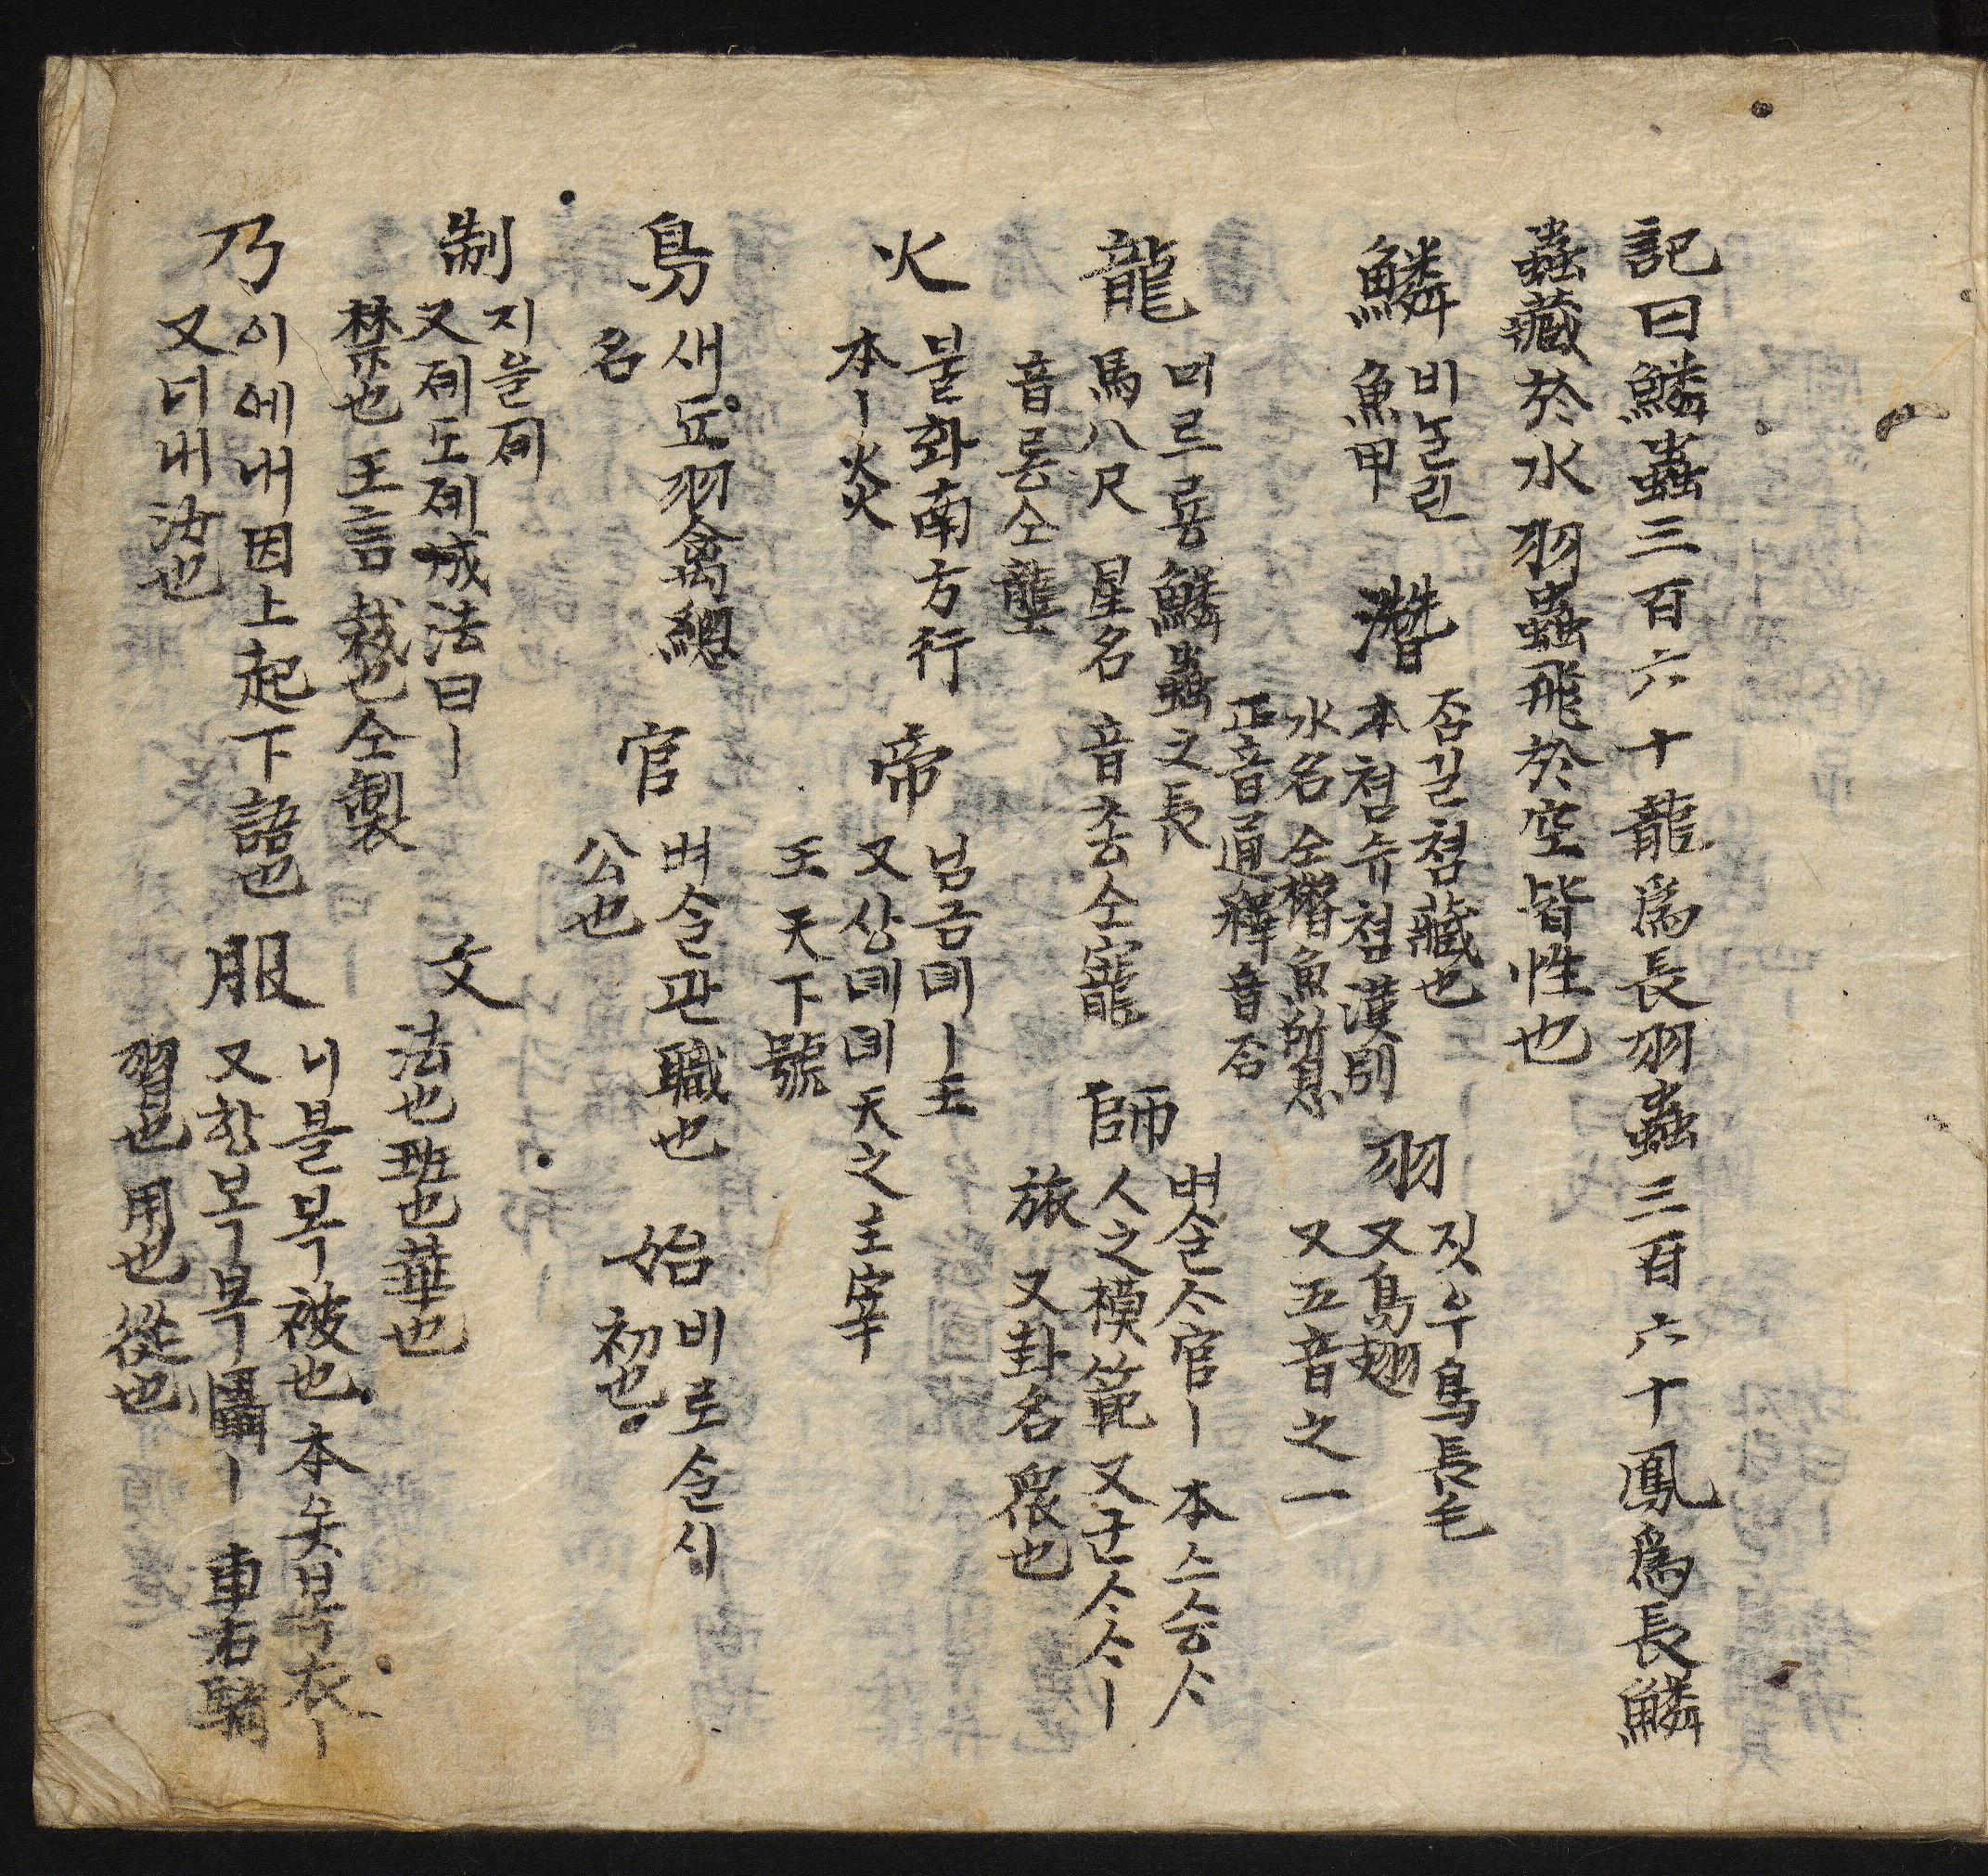 記曰鱗蟲三百六十龍爲長羽蟲三百六十鳳爲長鱗
蟲藏於水羽蟲飛於空皆性也
鱗
비늘린
魚甲
潛
길쳠藏也
本쳠슈쳠漢別
水名 仝橬魚所息
正音通釋音
羽
짓우鳥長毛
又鳥翅
又五音之一
龍
미르룡鱗蟲之長
馬八尺 星名 音춍仝寵
音롱仝壟
師
벼슬ᄉᆞ官ㅣ 本스승ᄉᆞ
人之模範又군ᄉᆞᄉᆞㅣ
旅 又卦名 衆也
火
불화南方行
本ㅣ炎
帝
님금뎨ㅣ王
又상뎨뎨天之主宰
王天下號
鳥
새됴羽禽總
名
官
벼슬관職也
公也
始
비로솔시
初也
制
지을졔
又졔도졔成法曰ㅣ
禁也 王言 裁也仝製
文
法也班也華也
乃
이에내因上起下語也
又너내汝也
服
니블복被也 本옷복衣ㅣ
又항복복ㅣ 車右騎
習也 用也 從也